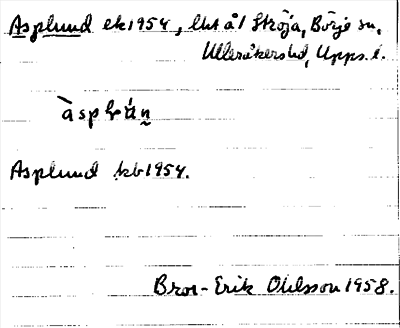 Asplund ek 1954, lht å l Ströja, Börje sn,
Ulleråkers hd, Upps. l.
Asplund kb 1954.
Bror-Erik Ohlsson 1958.